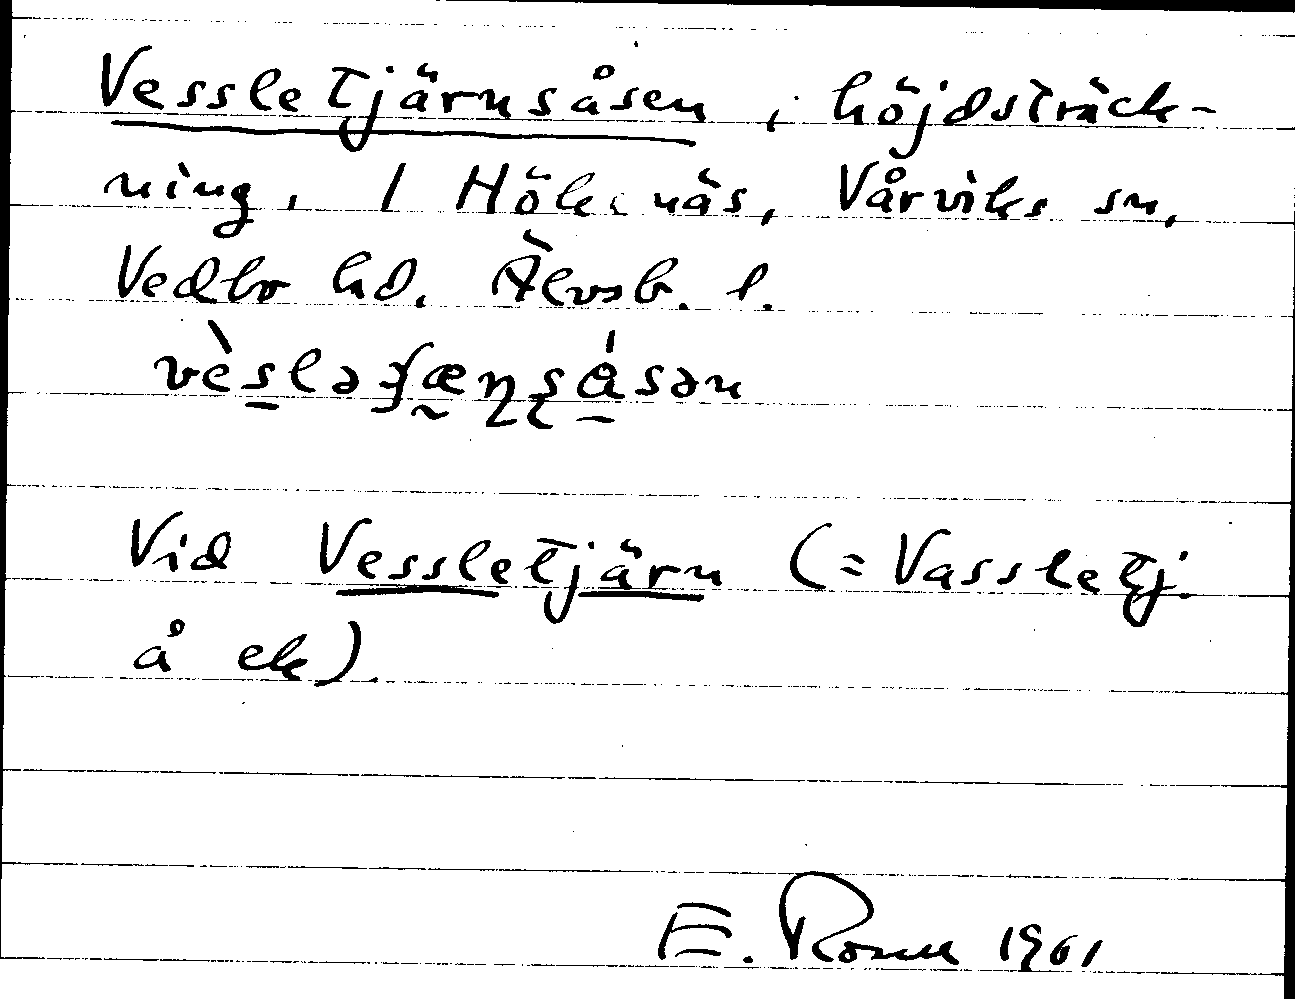 Vessletjärnsåsen, höjdsträck-
ning, 1 Höknäs, Vårviks sn,
Vedbo hd. Älvsb. l.
Vid Vessletjärn (= Vassletj.
å ek).
E. Rosell 1961